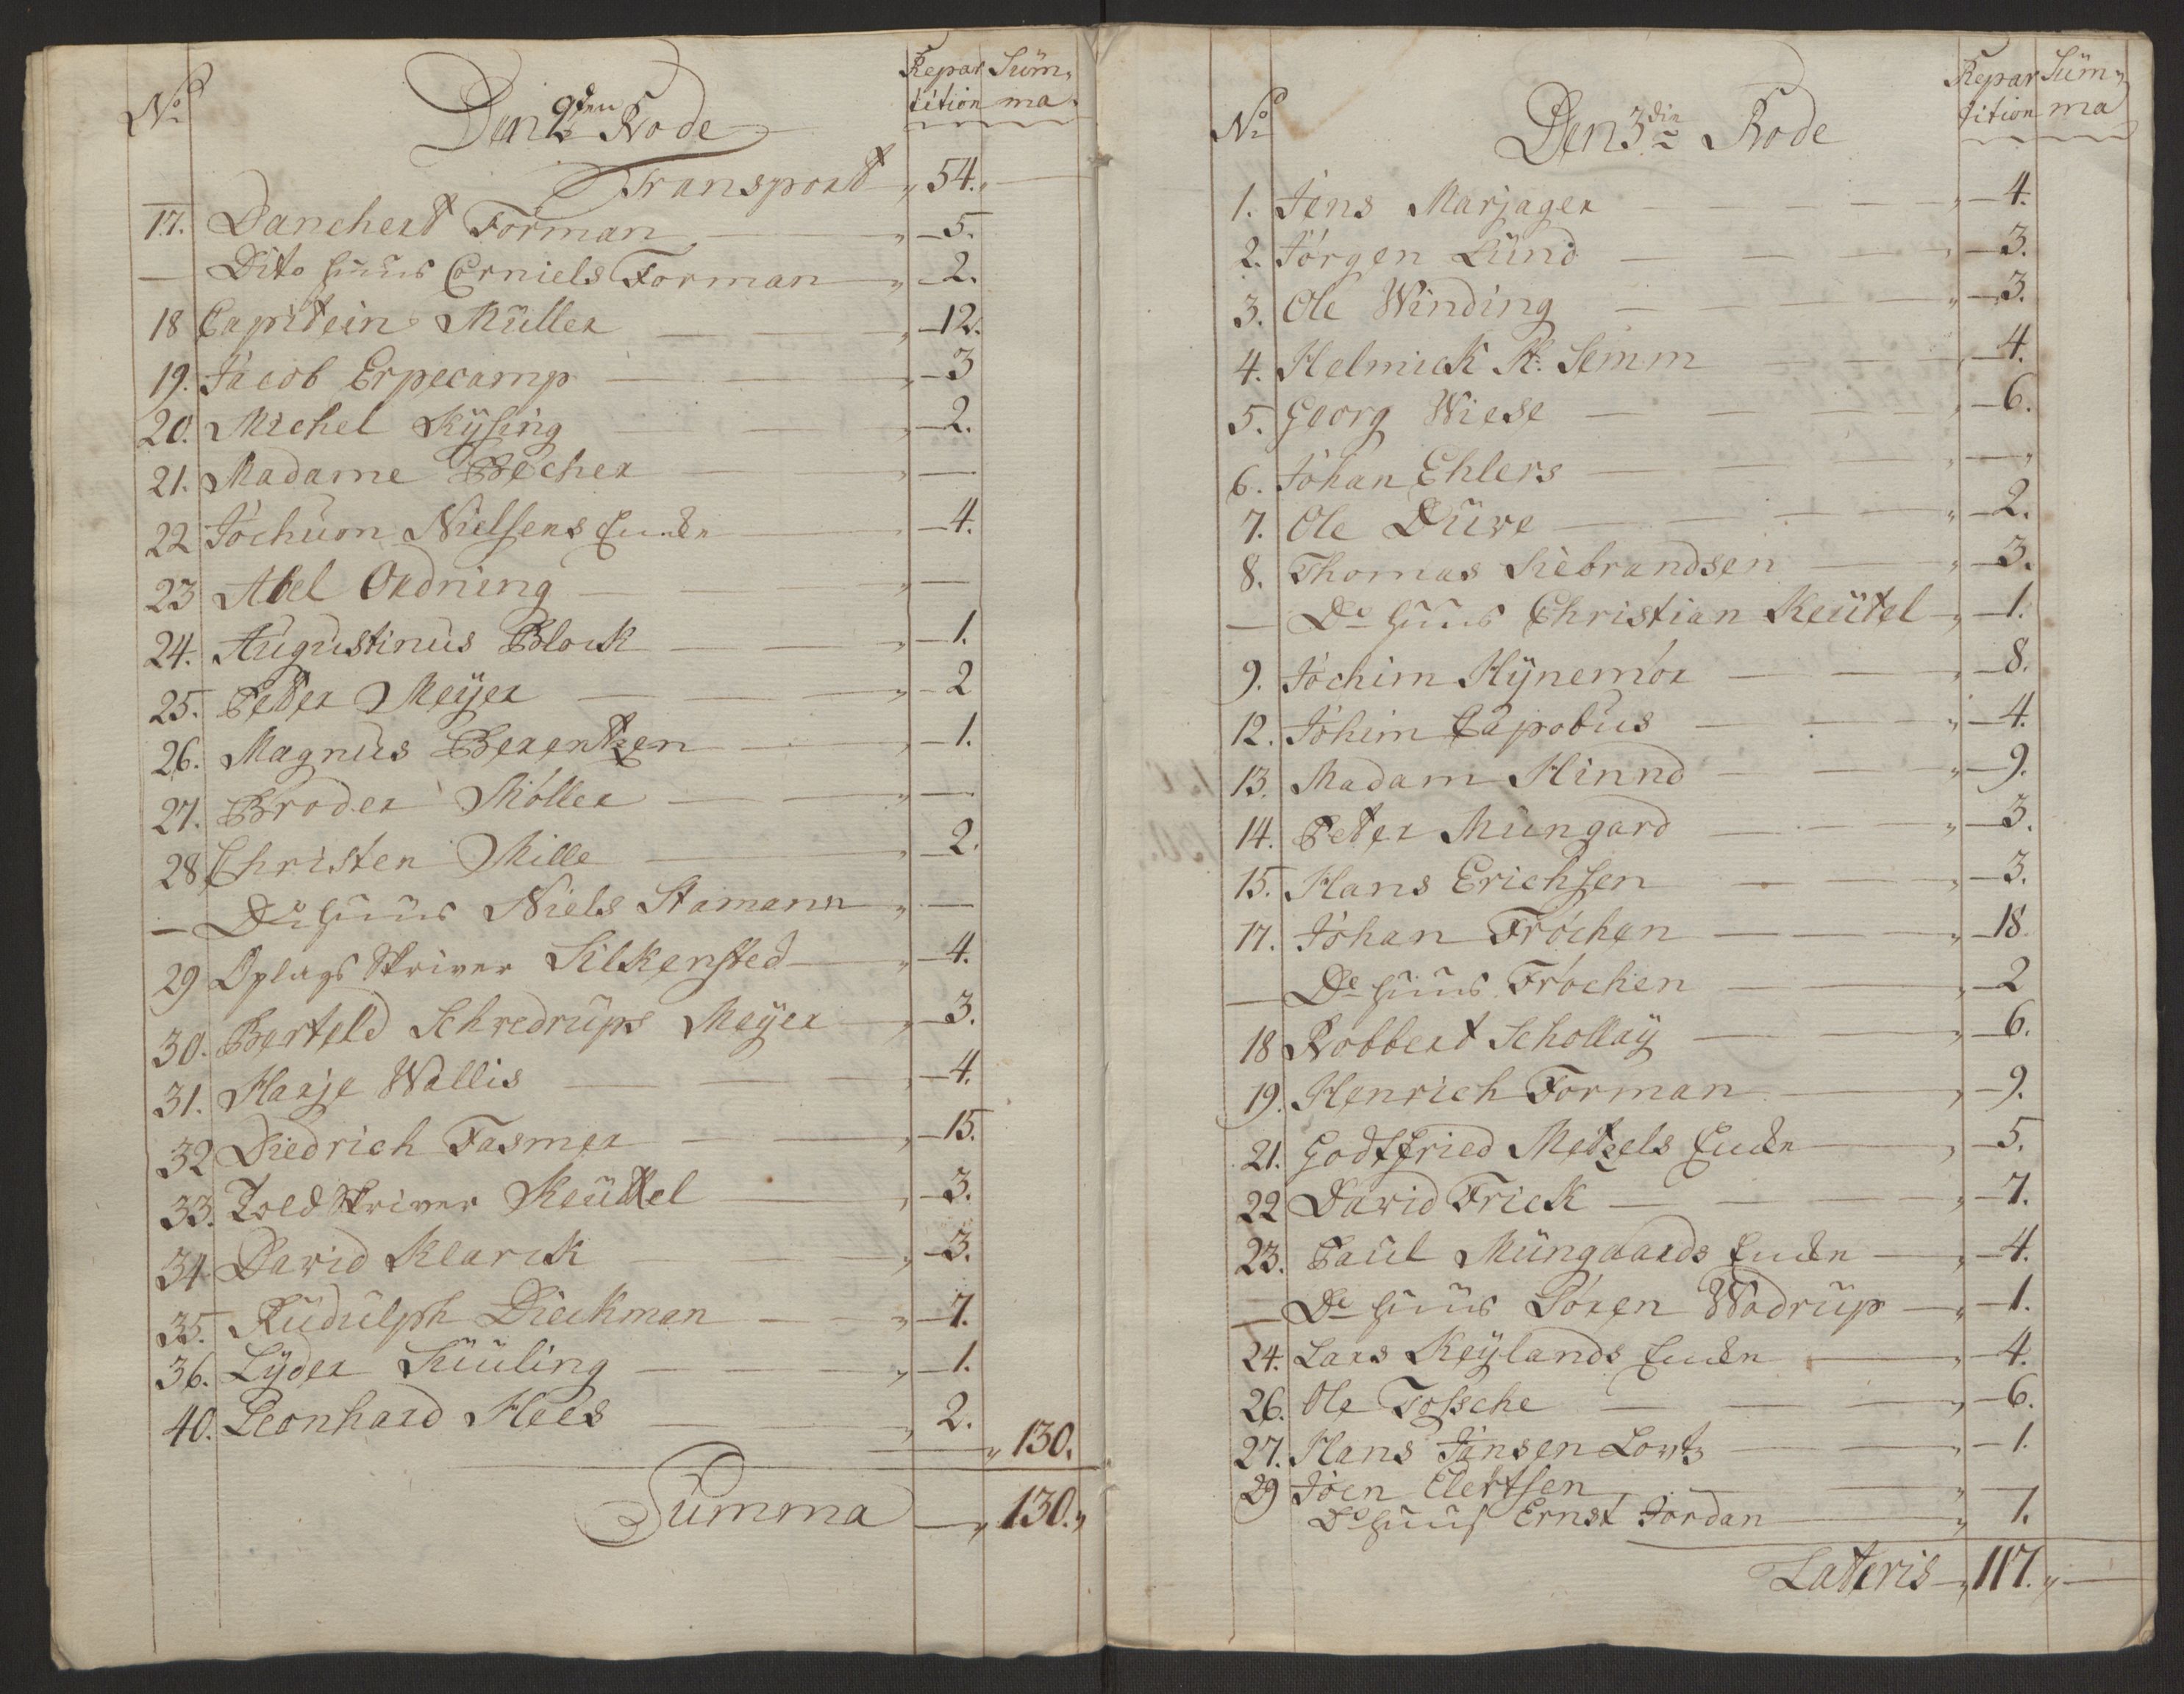 No Den 2den Rode Repar Süm„
tition ma
Transport „ 54. „
17. Danchert Forman „ 5.
— Dito Huus Corniels Forman „ 2.
18 Capitein Müller „ 12.
19. Jacob Erpecamp „ 3
20. Michel Kÿsing „ 2.
21. Madame Becher „ —
22 Jóchŭm Nielsens Encke „ 4.
23 Abel Ordning „ —
24. Augustinus Block „ 1.
25. Peter Meÿer „ 2
26. Magnus Berentzen „ 1.
27. Broder Möller „ —
28 Christen Mille „ 2.
— Do Huus Niels Stamann „ —
29 Oplags Skriver Silkensted „ 4.
30. Berteld Schredrups Meÿer „ 3.
31. Harje Wallis „ 4.
32 Diedrich Fasmer „ 15.
33. Told Skriver Keüttel „ 3.
34 David Klarck „ 3.
35. Rudulph Dieckman „ 7.
36. Lÿder Süuling „ 1.
40. Leonhard Hees „ 2.
„ 130.
Summa „ 130. „
No Den 3die Rode Repar Süm„
tition ma
1. Jens Marjager „ 4.
2. Jörgen Lund „ 3.
3. Ole Winding „ 3.
4. Helmick St: Semm „ 4.
5. Georg Wiese „ 6.
6. Johan Ehlers „ — „
7. Ole Düwe „ 2.
8. Thomas Siebrandsen „ 3.
— Do Huus Christian Keütel „ 1.
9. Jóchim Hÿnemör „ 8.
12. Jóhim Capobus „ 4.
13. Madam Hinnd „ 9.
14. Peter Mungard „ 3.
15. Hans Erichsen „ 3.
17. Jóhan Fróchen „ 18.
— Do Huus Fróchen „ 2
18 Robbert Schollaÿ „ 6.
19. Henrich Forman „ 9.
21. Godtfried Metzels Encke „ 5.
22 David Frick „ 7.
23. Paul Müngaards Encke „ 4.
— Do Huus Sören Wodrup „ 1.
24. Lars Keÿlands Encke „ 4.
26. Ole Tossche „ 6.
27. Hans Jansen Lortz „ 1.
29 Jóen Elertsen „ —
Do Huus Ernst Jordan „ 1.
Lateris „ 117. „